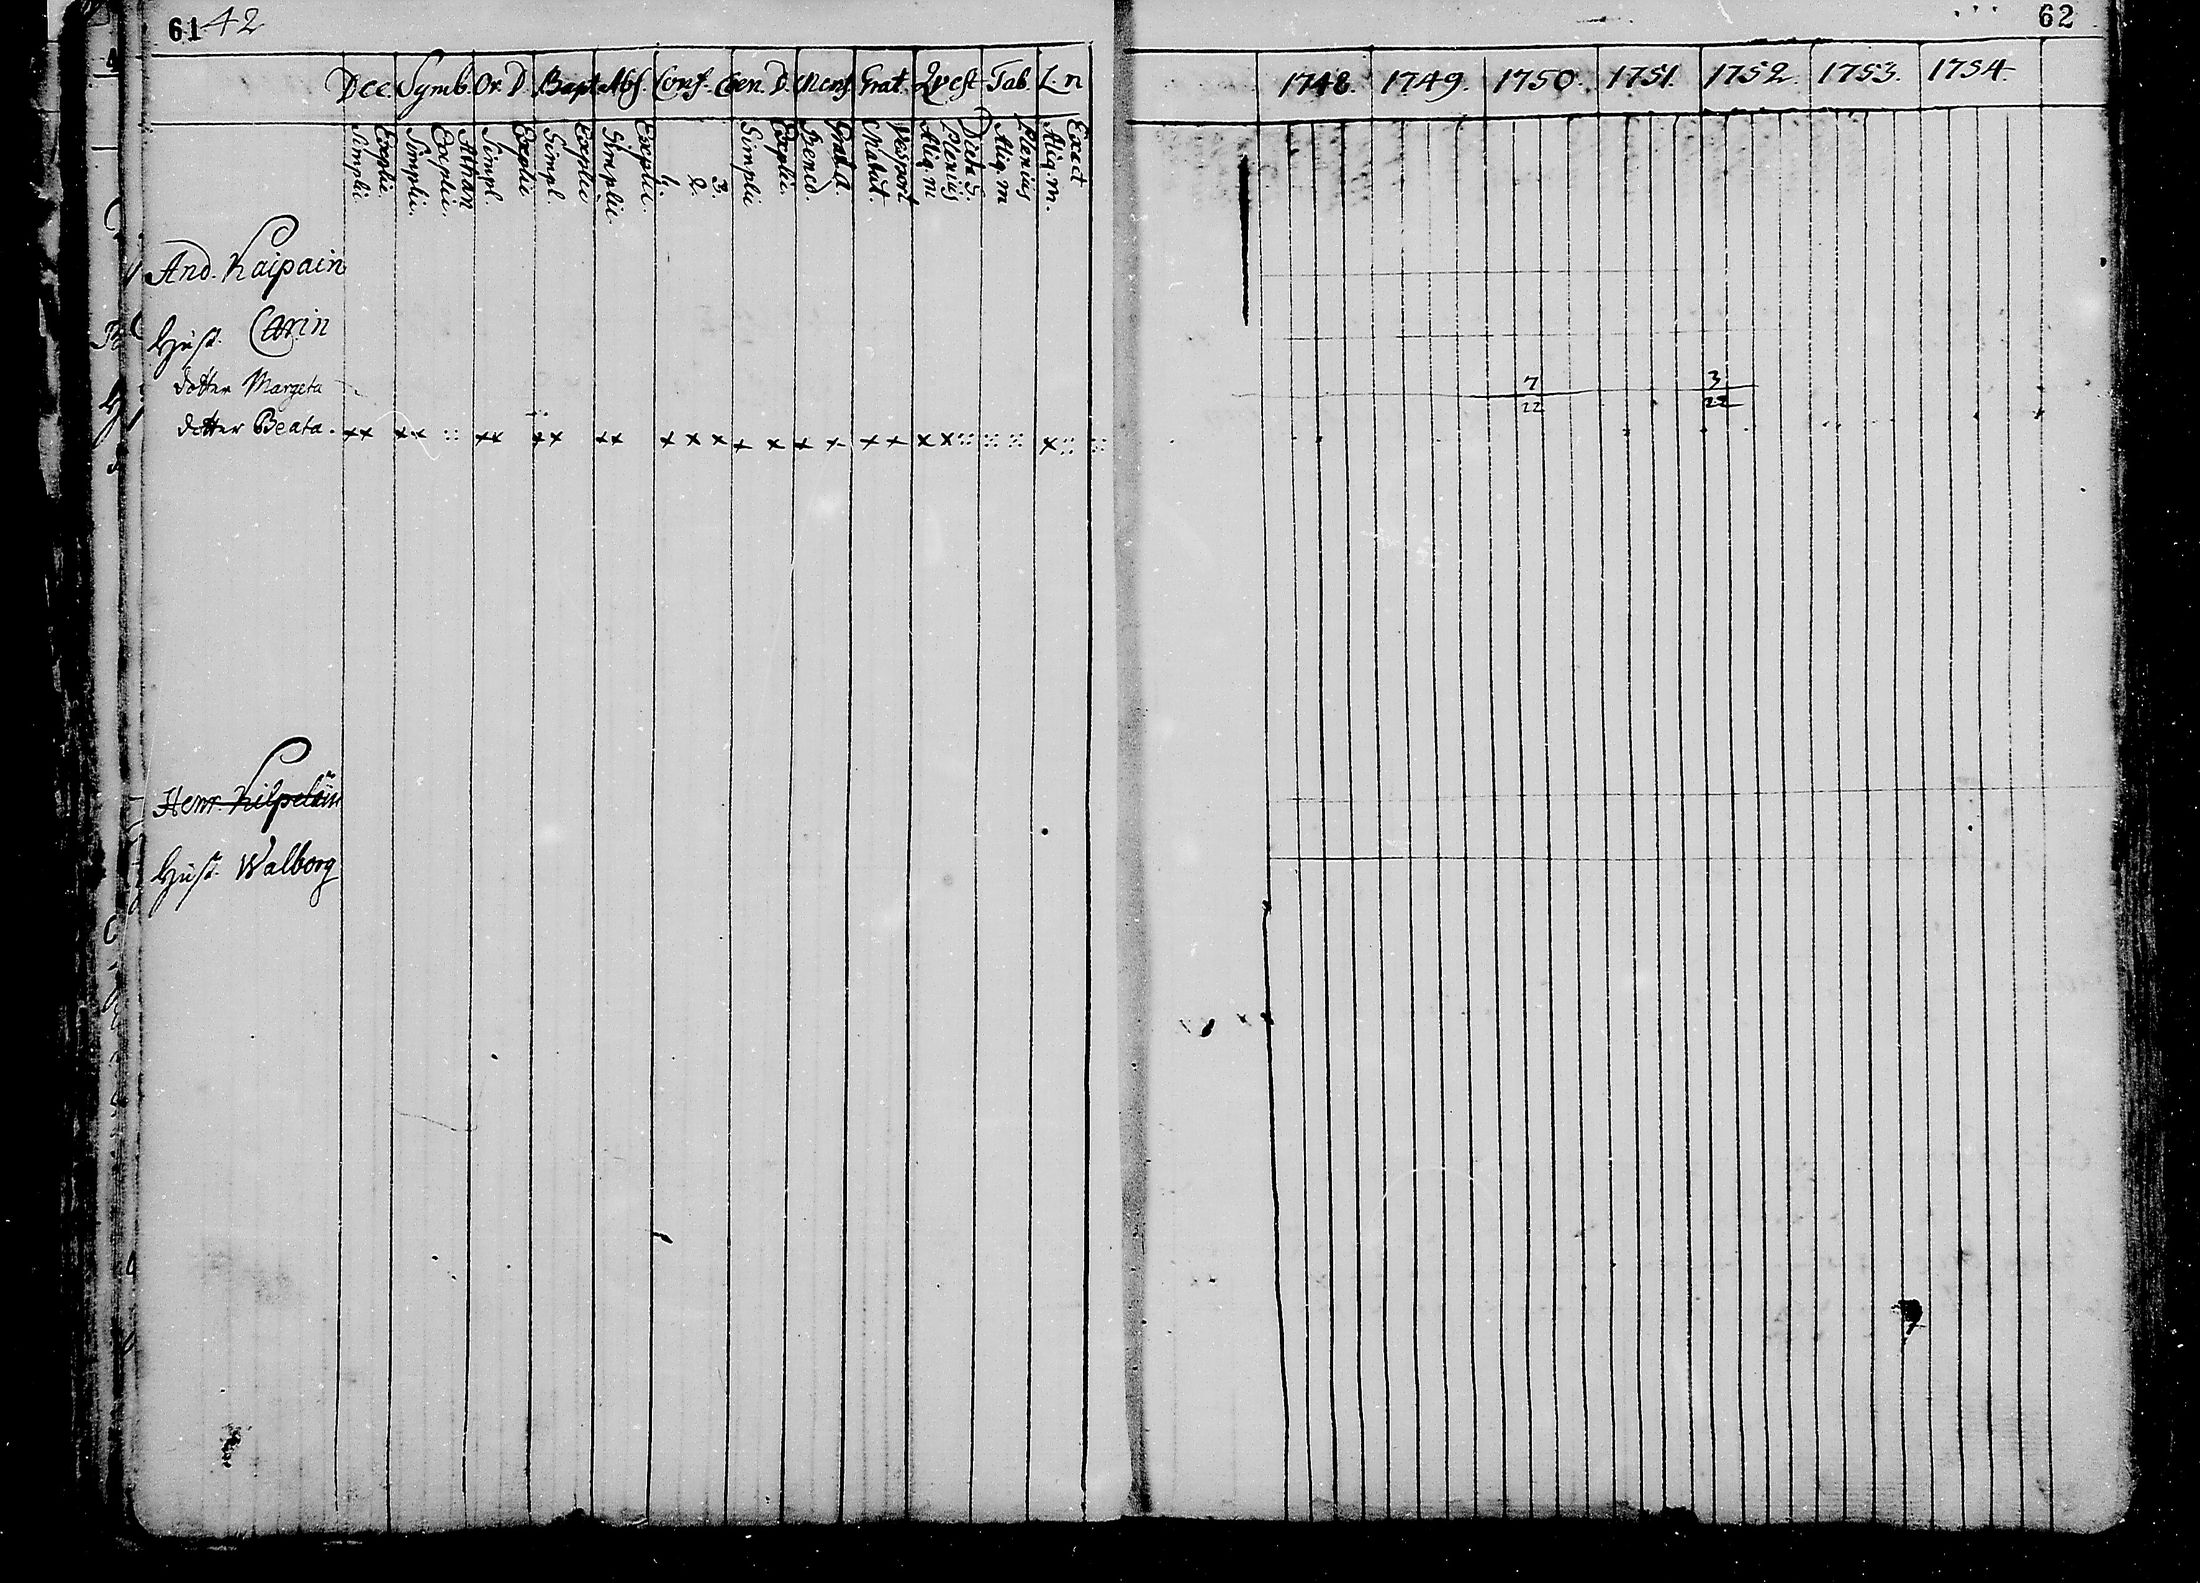 61 42
Dec. Symb. Or. D. Bapt. Abs. Conf. Cœn. D. Mens. Grat. Qvest. Tab. L. n
Simplic. Explic. Simplic. Explic. Athan Simpl. Explic Simpl. Explic Simplic. Explic. 1. 2. 3. Simplic Explic. Bened. Grat. a. Matut. Vespert Aliq. m Plenius Dicta S. Aliq. m Plenius Aliq. m. Exact
And. Kaipain
Hust. Carin
dotter Margeta
dotter Beata. xx xx :: xx xx xx x x x x x x x x x x x :: :: :: x :: ::
Henr. Kilpeläin
Hust. Walborg
62
1748. 1749. 1750. 1751. 1752. 1753. 1754
7 3
22 22